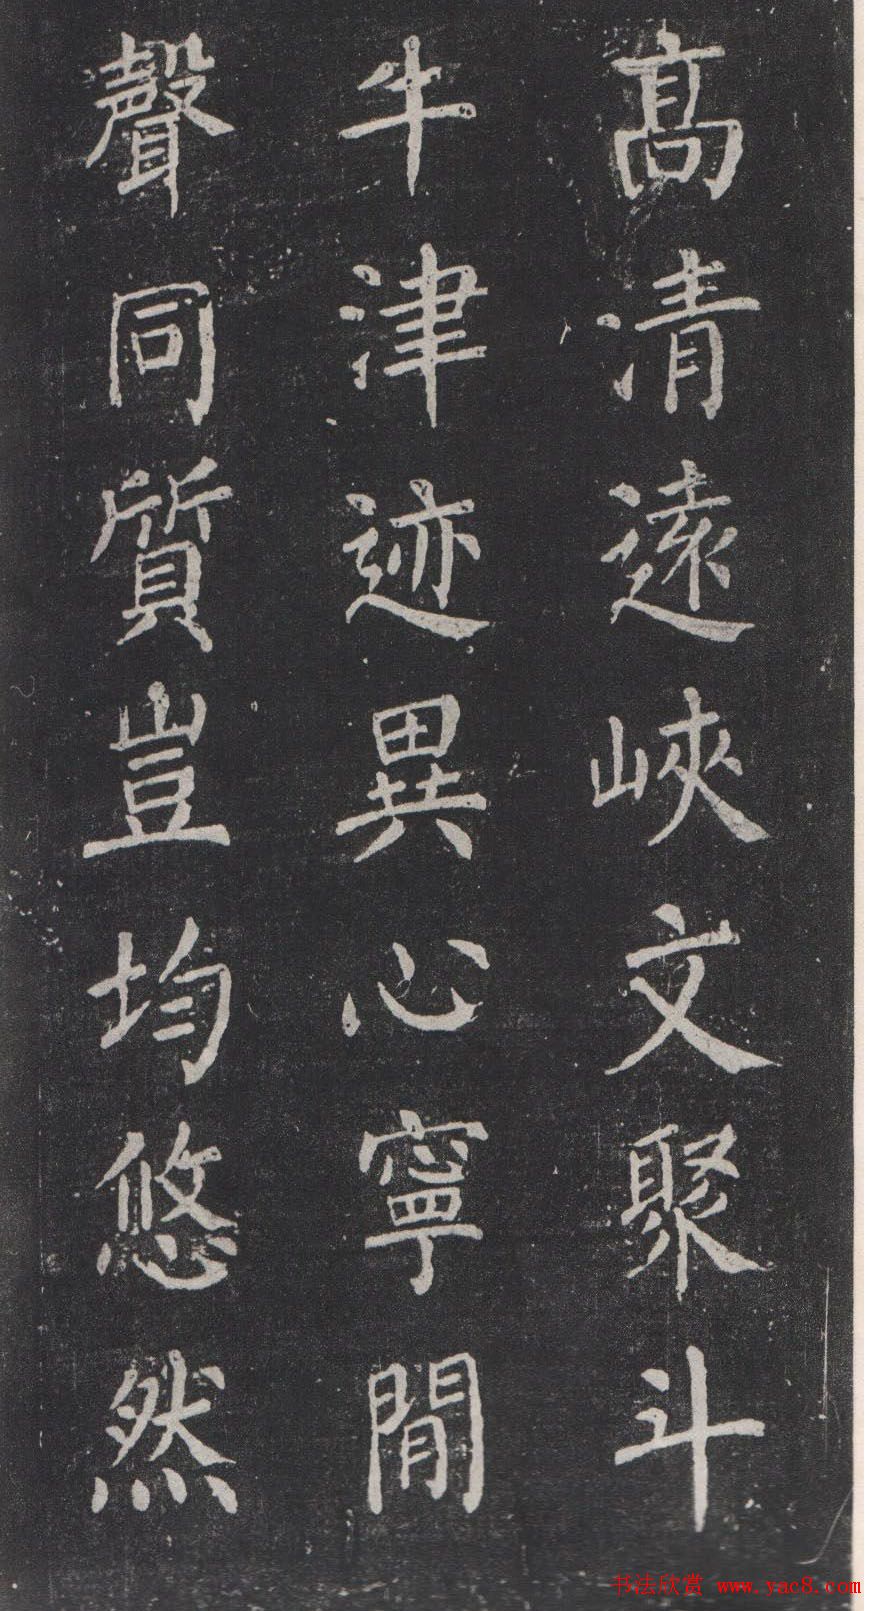 高清遠峽文聚斗
牛津迹異心寧閒
聲同質豈均悠然
书法欣赏 www.yac8.com